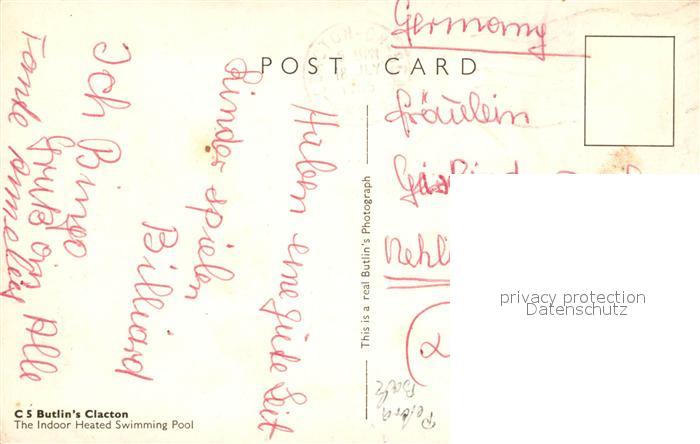 POST CARD
Haben eine gute Zeit
Kinder spielen
Billiard
Ich Bingo
Gruß an Alle
Tante
Germany
Fräulein
This is a real Butlin's Photograph
privacy protection
Datenschutz
C 5 Butlin's Clacton
The Indoor Heated Swimming Pool